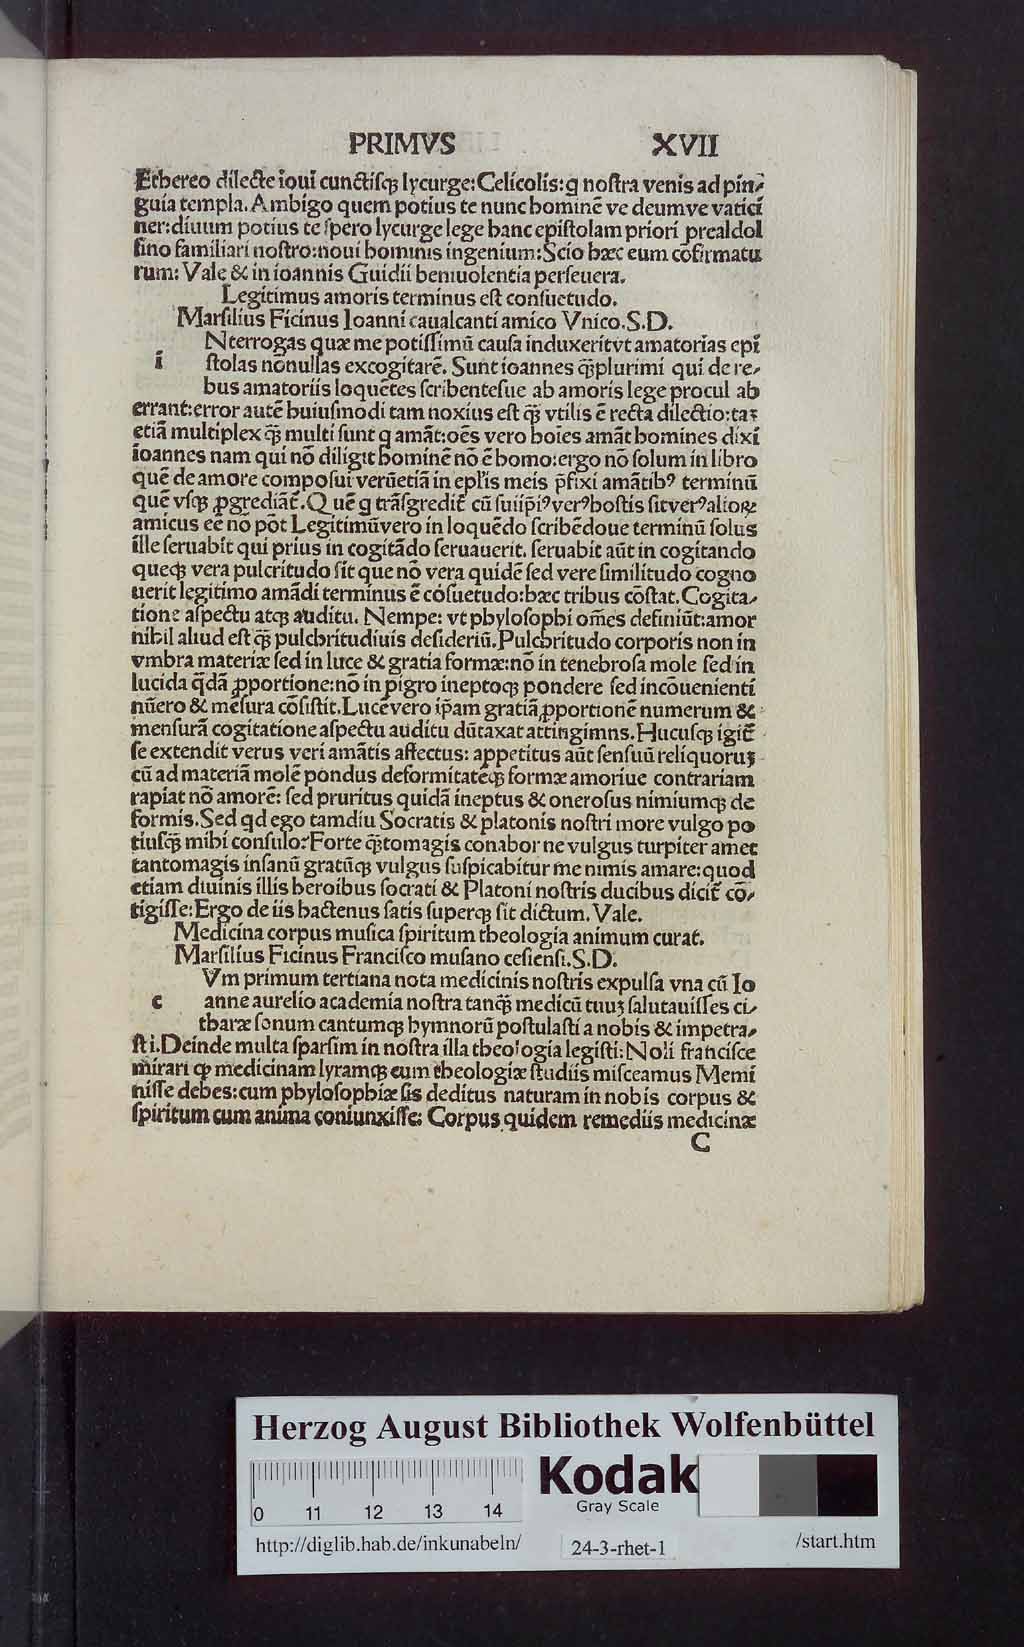 PRIMVS XVII
Ethereo dilecte ioui cunctiſqꝫ lycurge: Celicolis: q̄ noſtra venis ad pin⸗
guia templa. Ambigo quem potius te nunc hominē ve deumve vatici
ner: diuum potius te ſpero lycurge lege hanc epiſtolam priori prealdol
fino familiari noſtro: noui hominis ingenium: Scio hæc eum cōfirmatu
rum: Vale & in ioannis Guidii beniuolentia perſeuera.
Legitimus amoris terminus est conſuetudo.
Marſilius Ficinus Ioanni caualcanti amico Vnico. S. D.
Nterrogas quæ me potiſſimū cauſa induxerit vt amatorias epi
i ſtolas nōnullas excogitarē. Sunt ioannes q̄ꝫplurimi qui de re⸗
bus amatoriis loquētes ſcribenteſue ab amoris lege procul ab
errant: error autē huiuſmodi tam noxius eſt q̄ꝫ vtilis ē recta dilectio: taꝫ
etiā multiplex q̄ꝫ multi ſunt q amāt: oēs vero hoīes amāt homines dixi
ioannes nam qui nō diligit hominē nō ē homo: ergo nō ſolum in libro
quē de amore compoſui verūetiā in epl̄is meis p̄fixi amātibꝰ terminū
quē vſqꝫ ꝓgrediāt̄. Quē q trāſgredit̄ cū ſui ip̄iꝰ verꝰ hoſtis ſit verꝰ alioꝝ
amicus eē nō pōt Legitimū vero in loquēdo ſcribēdoue terminū ſolus
ille ſeruabit qui prius in cogitādo ſeruauerit. ſeruabit aūt in cogitando
queqꝫ vera pulcritudo ſit que nō vera quidē ſed vere ſimilitudo cogno
uerit legitimo amādi terminus ē cōſuetudo: hæc tribus cōſtat. Cogita⸗
tione aſpectu atqꝫ auditu. Nempe: vt phyloſophi om̄es definiūt: amor
nihil aliud eſt q̄ꝫ pulchritudiuis deſideriū. Pulchritudo corporis non in
vmbra materiæ ſed in luce & gratia formæ: nō in tenebroſa mole ſed in
lucida q̄dā ꝓportione: nō in pigro ineptoqꝫ pondere ſed incōuenienti
nūero & mēſura cōſiſtit. Lucē vero ip̄am gratiā ꝓportionē numerum &
menſurā cogitatione aſpectu auditu dūtaxat attingimns. Hucuſqꝫ igit̄
ſe extendit verus veri amātis affectus: appetitus aūt ſenſuū reliquoruꝫ
cū ad materiā molē pondus deformitatēqꝫ formæ amoriue contrariam
rapiat nō amorē: ſed pruritus quidā ineptus & oneroſus nimiumqꝫ de
formis. Sed qd ego tamdiu Socratis & platonis noſtri more vulgo po
tiuſq̄ꝫ mihi conſulo? Forte q̄ꝫtomagis conabor ne vulgus turpiter amet
tantomagis inſanū gratūqꝫ vulgus ſuſpicabitur me nimis amare: quod
etiam diuinis illis heroibus ſocrati & Platoni noſtris ducibus dicit̄ cō⸗
tigiſſe: Ergo de iis hactenus ſatis ſuperqꝫ ſit dictum. Vale.
Medicina corpus muſica ſpiritum theologia animum curat.
Marſilius Ficinus Franciſco muſano ceſienſi. S. D.
Vm primum tertiana nota medicinis noſtris expulſa vna cū Io
c anne aurelio academia noſtra tanq̄ꝫ medicū tuuꝫ ſalutauiſſes ci⸗
tharæ ſonum cantumqꝫ hymnorū poſtulaſti a nobis & impetra⸗
ſti. Deinde multa ſparſim in noſtra illa theologia legiſti: Noli franciſce
mirari ꝙ medicinam lyramqꝫ cum theologiæ ſtudiis miſceamus Memi
niſſe debes: cum phyloſophiæ ſis deditus naturam in nobis corpus &
ſpiritum cum anima coniunxiſſe: Corpus quidem remediis medicinæ
C
Herzog August Bibliothek Wolfenbüttel
0 11 12 13 14
Kodak
Gray Scale
http://diglib.hab.de/inkunabeln/ 24-3-rhet-1 /start.htm